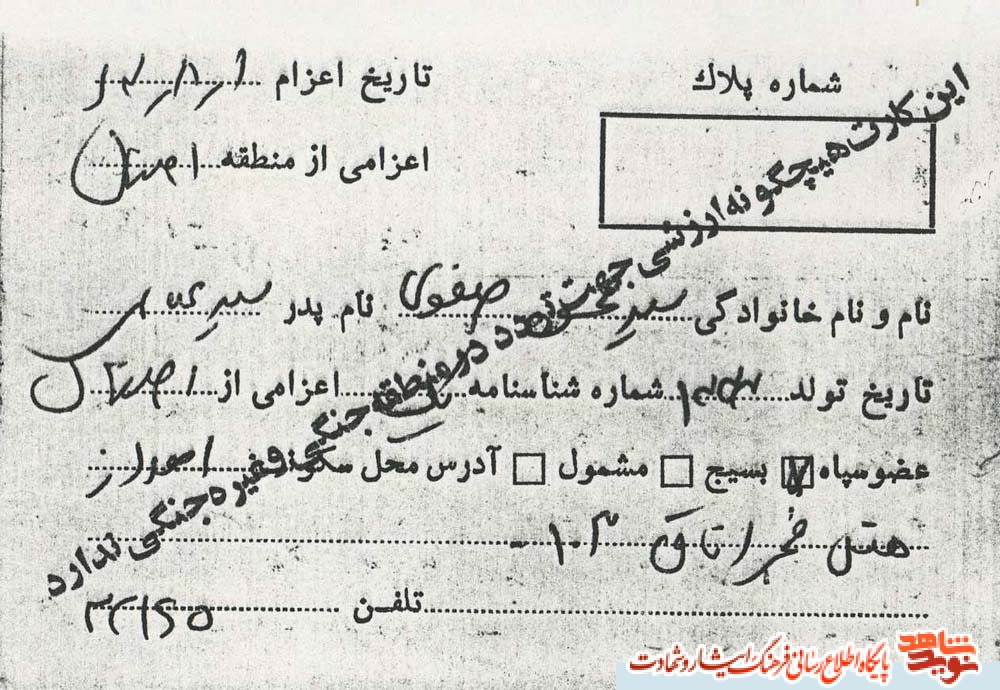 شماره پلاك
تاریخ اعزام ۱ر۱ر
اعزامی از منطقه اصفهان
نام و نام خانوادگی سید محسن صفوی نام پدر سید
تاریخ تولد شماره شناسنامه اعزامی از اصفهان
عضو سپاه بسیج مشمول آدرس محل سکونت اهواز
هتل فجر اتاق ۱۰۲
تلفن ۳۲۱۶۵
این کارت هیچگونه ارزشی جهت تردد در منطقه جنگی و غیره جنگی ندارد
نوید شاهد
پایگاه اطلاع رسانی فرهنگ ایثار و شهادت